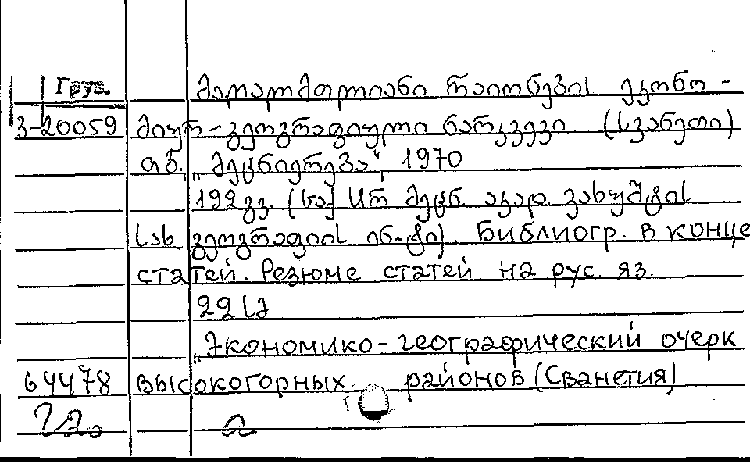 Груз. მაღალმთიანი რაიონების ეკონო-
3-20059 მიურ-გეოგრაფიული ნარკვევი (სვანეთი)
თბ. „მეცნიერება“, 1970
192 გვ. (საქ. სსრ მეცნ. აკად. ვახუშტის
სახ. გეოგრაფიის ინ-ტი). Библиогр. в конце
статей. Резюме статей на рус. яз.
„Экономико-географический очерк
64478 высокогорных районов (Сванетия)